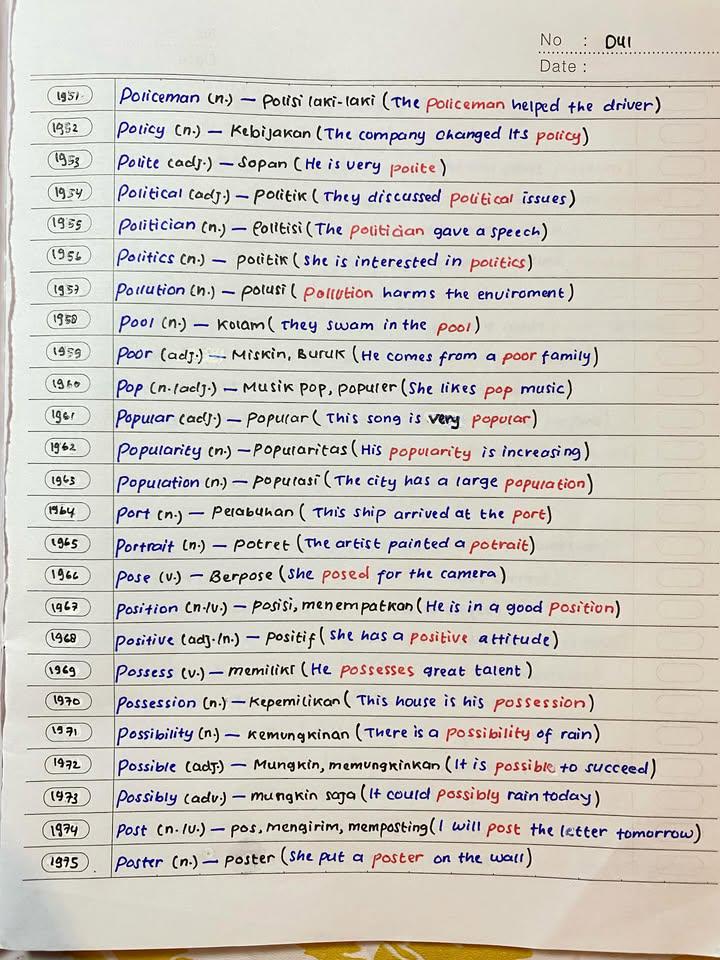 No : D41
Date :
1951. Policeman (n.) — Polisi laki-laki (The policeman helped the driver)
1952 Policy (n.) — Kebijakan (The company changed Its policy)
1953 Polite (adj.) — Sopan (He is very polite)
1954 Political (adj.) — Politik (They discussed political issues)
1955 Politician (n.) — Politisi (The politician gave a speech)
1956 Politics (n.) — politik (she is interested in politics)
1957 Pollution (n.) — polusi (pollution harms the enviroment)
1958 Pool (n.) — Kolam (They swam in the pool)
1959 Poor (adj.) — Miskin, Buruk (He comes from a poor family)
1960 Pop (n./adj.) — Musik pop, populer (She likes pop music)
1961 Popular (adj.) — Popular (This song is very popular)
1962 Popularity (n.) — Popularitas (His popularity is increasing)
1963 Population (n.) — Populasi (The city has a large population)
1964 Port (n.) — Pelabuhan (This ship arrived at the port)
1965 Portrait (n.) — Potret (The artist painted a potrait)
1966 Pose (v.) — Berpose (She posed for the camera)
1967 Position (n./v.) — posisi, menempatkan (He is in a good position)
1968 Positive (adj./n.) — positif (she has a positive attitude)
1969 Possess (v.) — memiliki (He possesses great talent)
1970 Possession (n.) — Kepemilikan (This house is his possession)
1971 Possibility (n.) — Kemungkinan (There is a possibility of rain)
1972 Possible (adj.) — Mungkin, memungkinkan (It is possible to succeed)
1973 Possibly (adv.) — mungkin saja (It could possibly rain today)
1974 Post (n./v.) — pos, mengirim, memposting (I will post the letter tomorrow)
1975 Poster (n.) — poster (she put a poster on the wall)